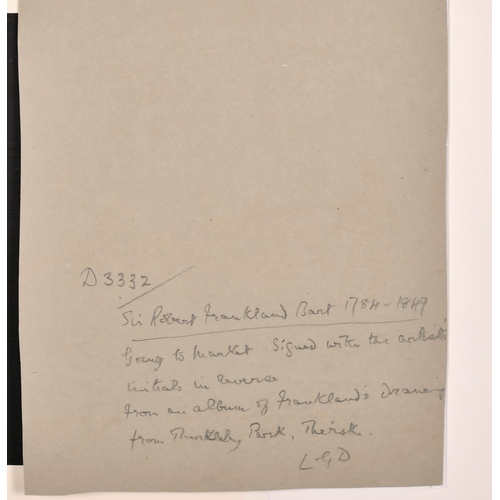 D3332
Sir Robert Frankland Bart 1784-1849
Going to Market. Signed with the artist's
initials in reverse
From an album of Frankland's Drawing
from Thirkleby Park, Thirsk.
LGD